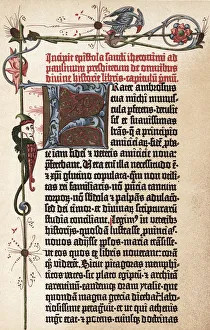 Incipit epistola sancti iheronimi ad
paulinum presbiterum de omnibus
divine historie libris. capitulū pmū.
Frater ambrosius
tua michi munus-
cula pferens. detulit
sil et suavissimas
lras. q a principio
amiciciaꝝ. fidē pba-
te iam fidei et veteris amicicie nova
pferebant. Vera eni illa necessitudo ē.
et xpi glutino copulata. qm non utili-
tas rei familiaris. nō pntia tantum
corpoꝝ. nō sbdola et palpās adulacō.
sed dei timor. et divinaꝝ scripturaꝝ
studia conciliant. Legim⁹ in veterib⁹
historijs. quosdā lustrasse puīcias.
novos adijsse pplos. maria trāsisse.
ut eos quos ex libris noverant: corā
q₃ viderēt. Sicut pitagoras memphi-
ticos vates. sic plato egiptū. et architā
tarentinū. eandemq₃ oram ytalie. que
quondā magna grecia dicebat: labo-
riosissime peragravit. et ut qui athenis
mgr erat. et potens. cuiusq₃ doctrinas